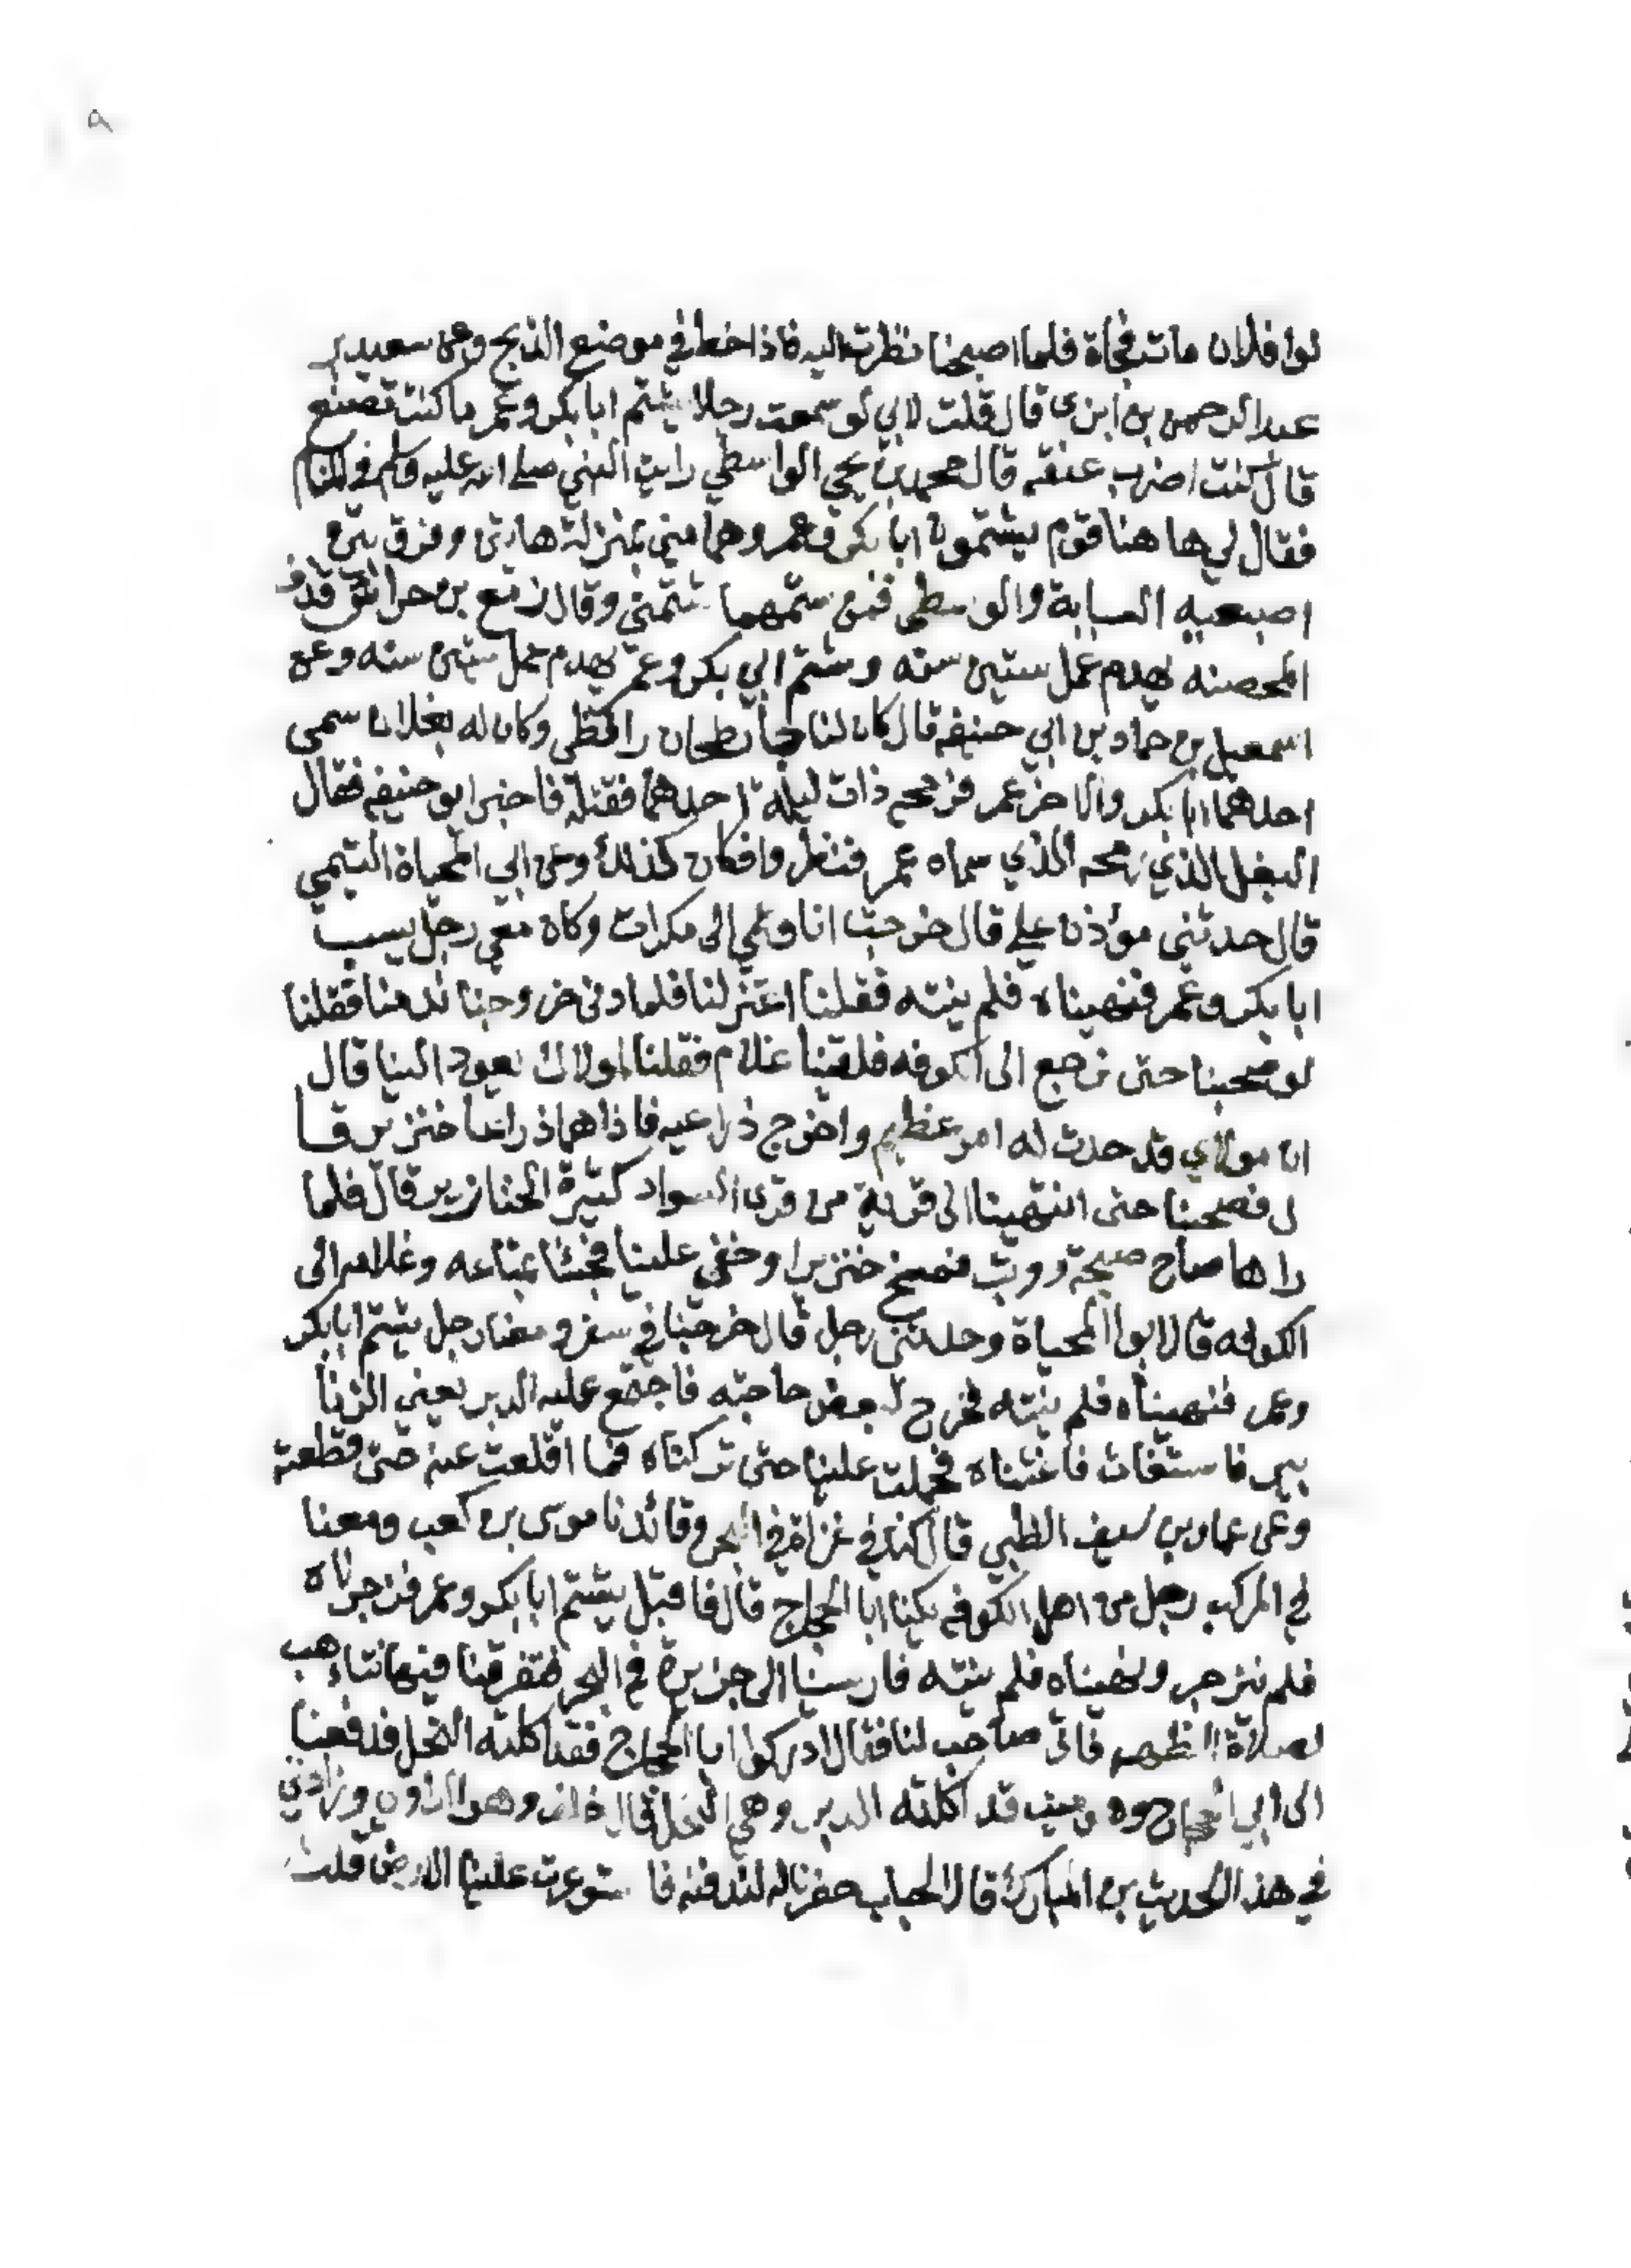 ٩
لوا فلان مات فجاة فلما اصبحنا نظرت اليه فاذا خط في موضع الذبح وعن سعيد بن
عبد الرحمن بن ابزى قال قلت لابي لو سمعت رجلا يشتم ابا بكر وعمر ما كنت تصنع
قال كنت اضرب عنقه قال محمد بن يحي الواسطي رايت النبي صلى الله عليه وسلم في المنام
فقال لي ها هنا قوم يشتمون ابا بكر وعمر وهما مني بمنزلة هاتين وفرق بين
اصبعيه السبابة والوسطى فمن شتمهما شتمني وقال بن حراش قذف
المحصنه يهدم عمل ستين سنه وشتم ابي بكر وعمر يهدم عمل ستين سنه وعن
اسمعيل بن حماد بن ابي حنيفه قال كان لنا طحان رافظي وكان له بغلان سمى
احدهما ابا بكر والاخر عمر فرمحه ذات ليلة احدهما فقتله فاخبر ابو حنيفه فقال
البغل الذي رمحه الذي سماه عمر فنظروا فكان كذلك وعن ابي المحياة التيمي
قال حدثني مؤذن علي قال خرجت انا وعمي الى مكران وكان معي رجل يسب
ابا بكر وعمر فنهيناه فلم ينته فقلنا اعتزلنا فلما دنى خروجنا ندمنا فقلنا
لو صحبنا حتى نرجع الى الكوفه فلقينا غلام فقلنا لمولاك يعود الينا قال
ان مولاي قد حدث له امر عظيم واخرج ذراعيه فاذا هما ذراعا خنزير قا
ل فصحبنا حتى انتهينا الى قرية من قرى السواد كثيرة الخنازير قال فلما
راها صاح صيحة ووثب فمسخ خنزيرا وخفي علينا فجئنا بمتاعه وغلامه الى
الكوفه قال ابوا المحياة وحدثني رجل قال خرجنا في سفر ومعنا رجل يشتم ابا بكر
وعمر فنهيناه فلم ينته فخرج لبعض حاجته فاجتمع عليه الدبر يعني الزنا
بير فاستغاث فاغثناه فحملت علينا حتى تركناه فما اقلعت عنه حتى قطعته
وعن عمار بن سيف الظبي قال كنا في غزاة في البحر وقائدنا موسى بن كعب ومعنا
في المركب رجل من اهل الكوفه يكنا ابا الحجاج قال فاقبل يشتم ابا بكر وعمر فزجرناه
فلم ينزجر ونهيناه فلم ينته فارسينا الى جزيرة في البحر فتفرقنا فيها نتاهب
لصلاة الظهر فاتى صاحب لنا فقال ادركوا ابا الحجاج فقد اكلته النحل فدفعنا
الى ابي الحجاج وهو ميت قد اكلته الدبر وهي النحل قال خلف وهو الراوي وزادني
في هذا الحديث بن المبارك قال الحباب حفرنا له لندفنه فاستوعرت علينا الارض قلت